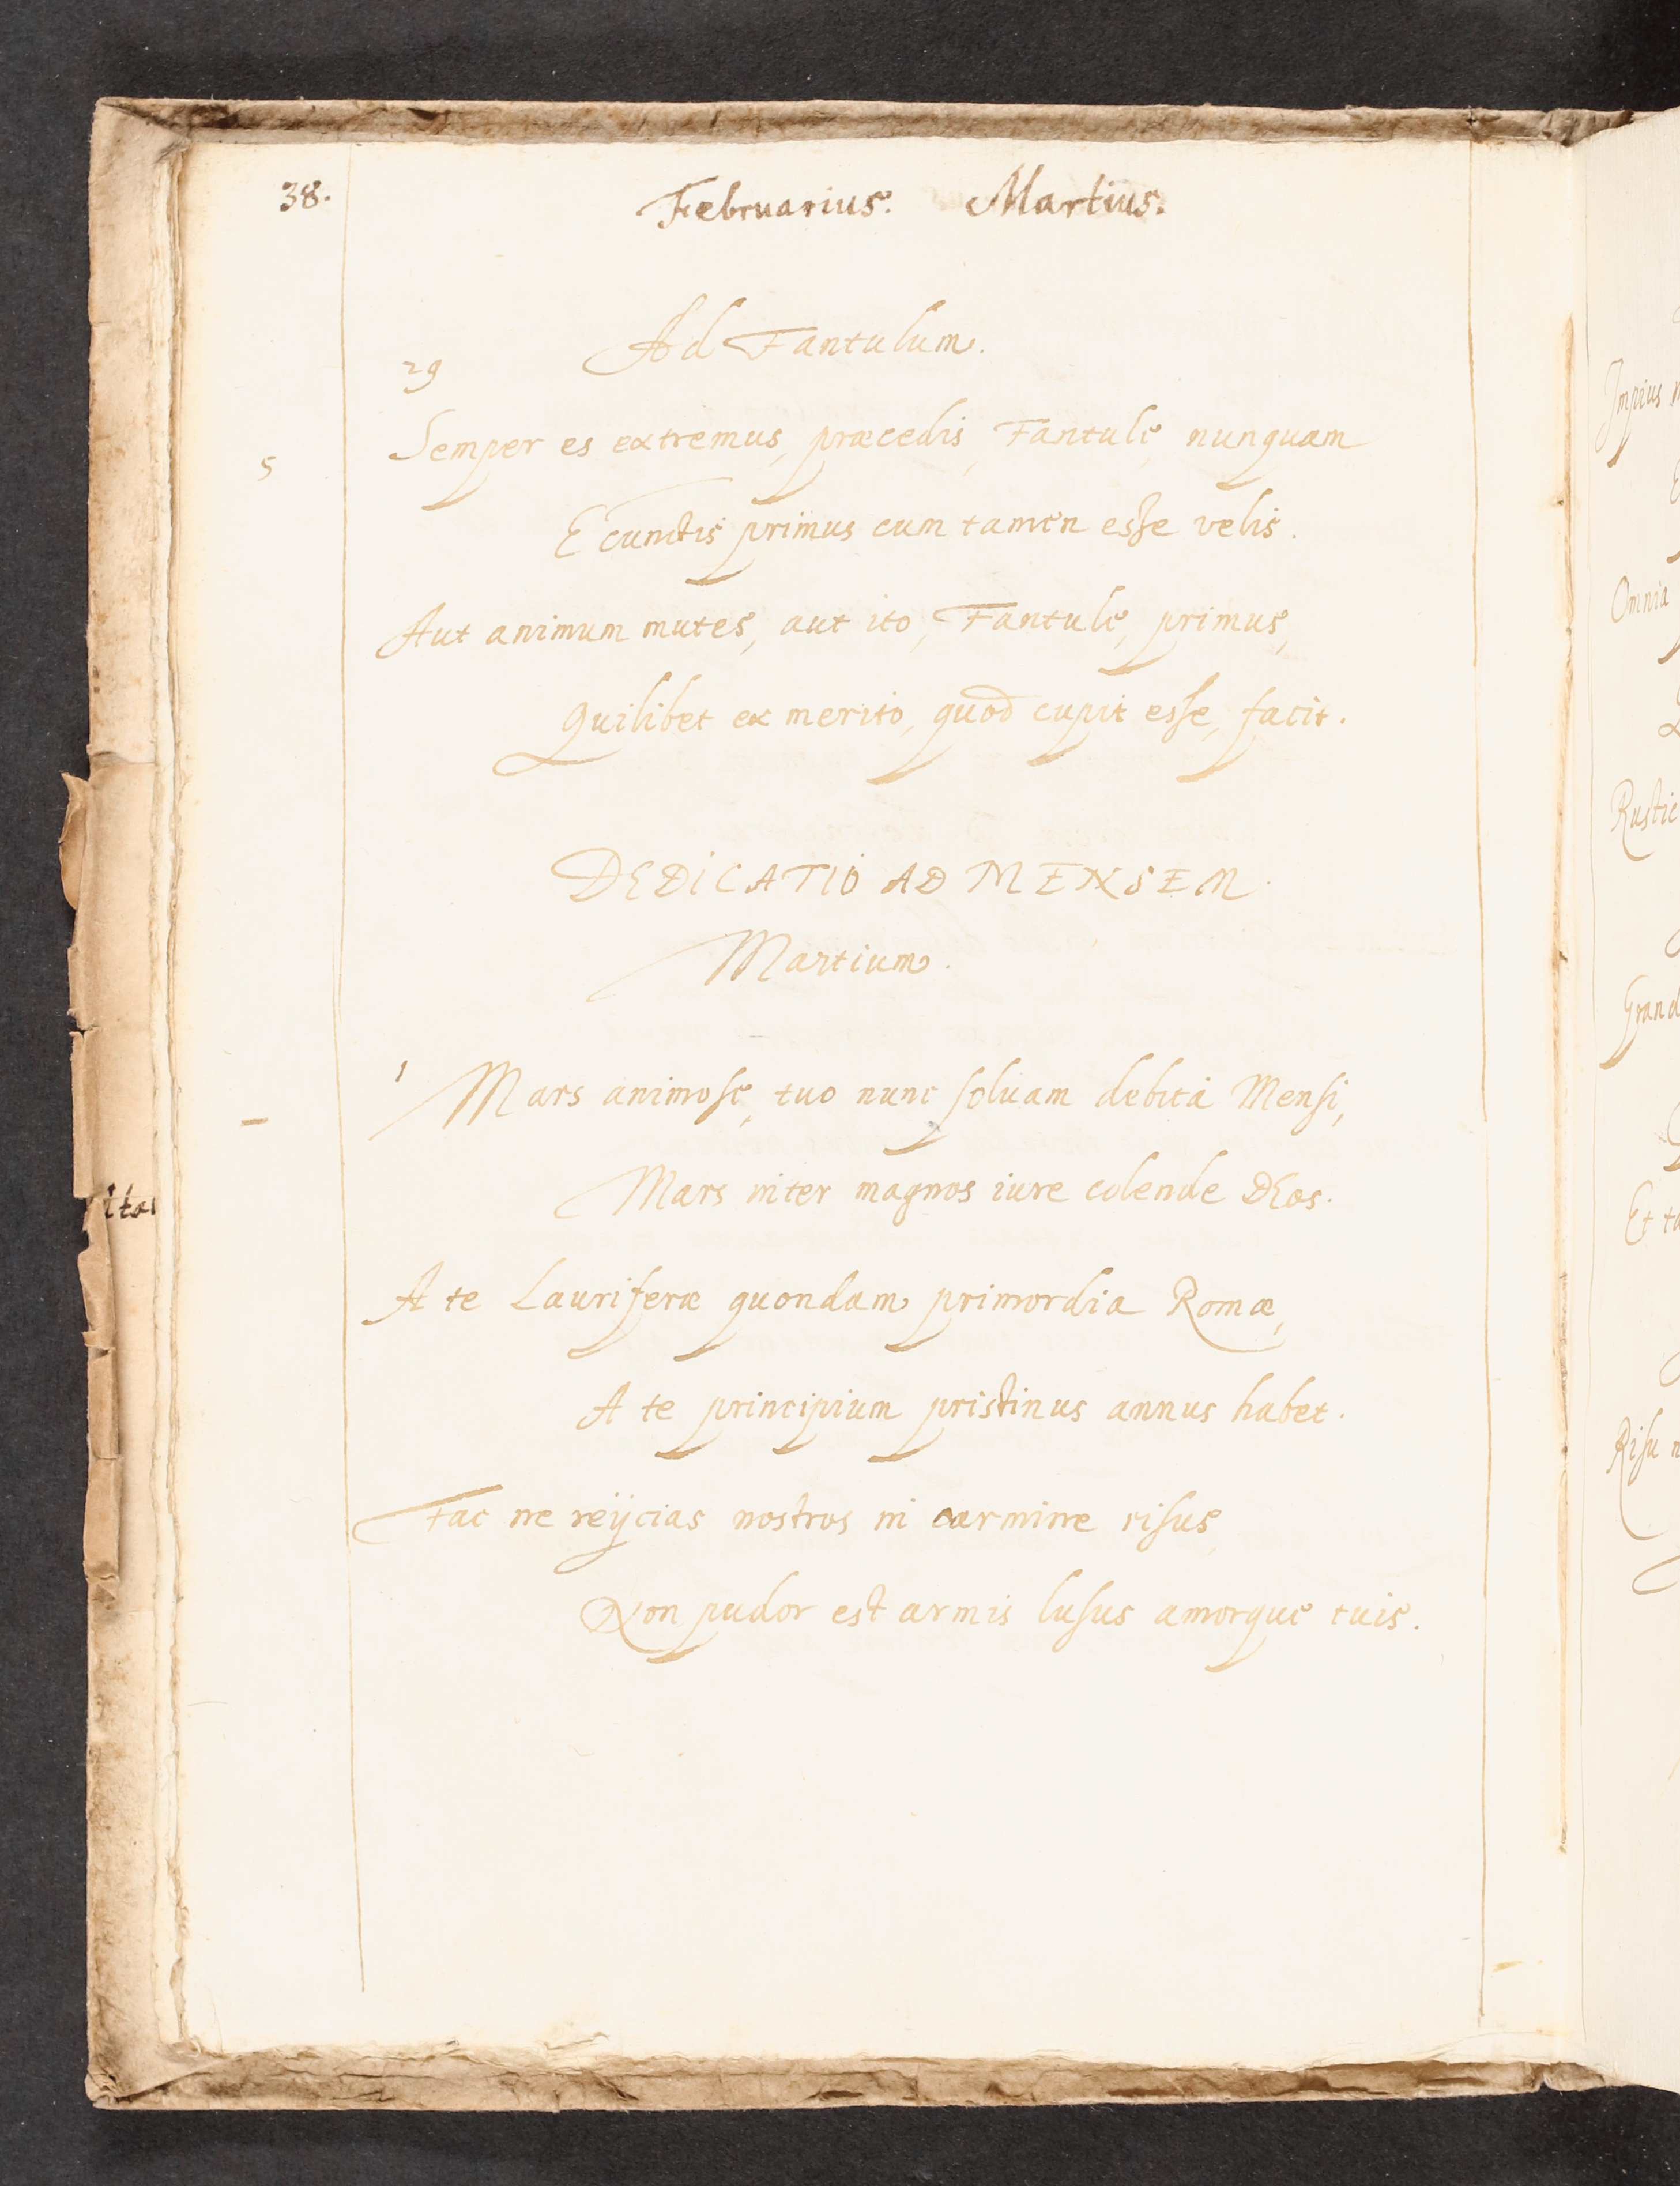 38.
Februarius. Martius.
Ad Fantulum.
29
Semper es extremus, præcedis, Fantule, nunquam
5
E cunctis primus cum tamen esse velis.
Aut animum mutes, aut ito, Fantule, primus,
Quilibet ex merito, quod cupit esse, facit.
DEDICATIO AD MENSEM
Martium.
1
Mars animose, tuo nunc soluam debita Mensi,
Mars inter magnos iure colende DEos.
A te Lauriferæ quondam primordia Romæ,
A te principium pristinus annus habet.
Fac ne reijcias nostros in carmine risus,
Non pudor est armis lusus amorque tuis.
Impius
Omnia
Et